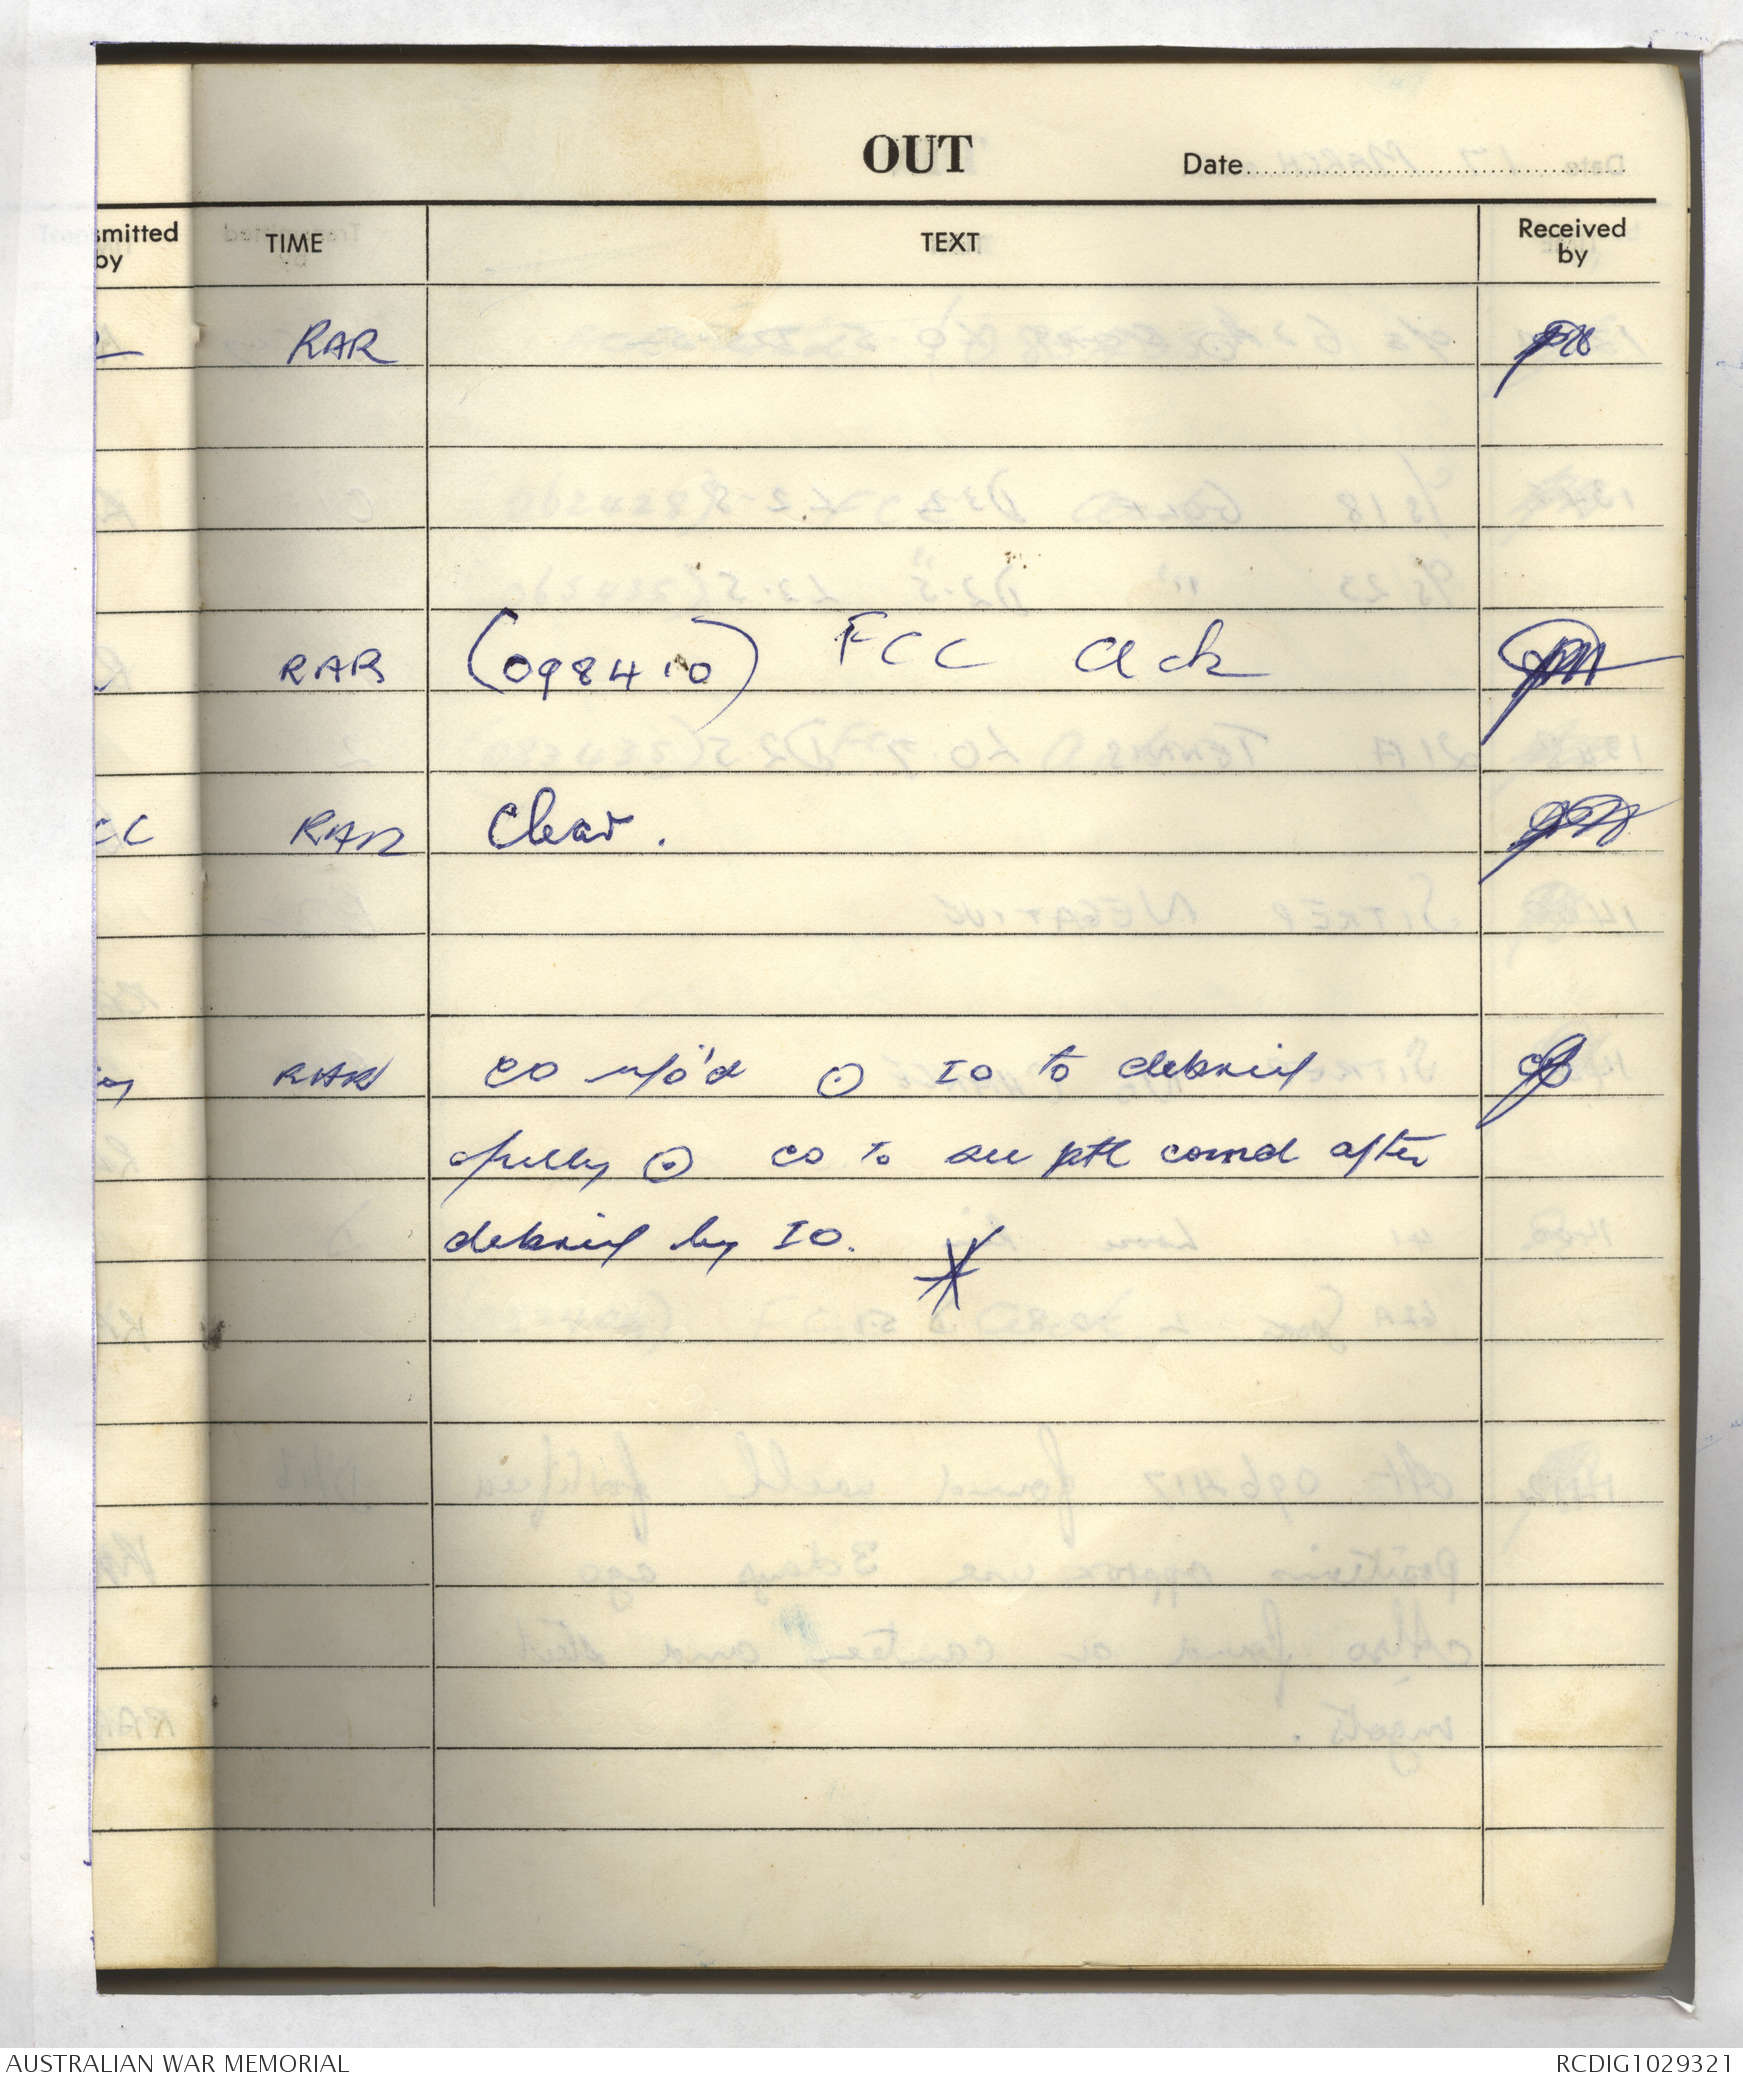 OUT
Date
smitted by
TIME
TEXT
Received by
RAR
RAR (098410) FCC Ack
CC RAR Clear.
RAR CO info'd ⊙ IO to debrief
fully ⊙ CO to see ptl comd after
debrief by IO.
AUSTRALIAN WAR MEMORIAL
RCDIG1029321